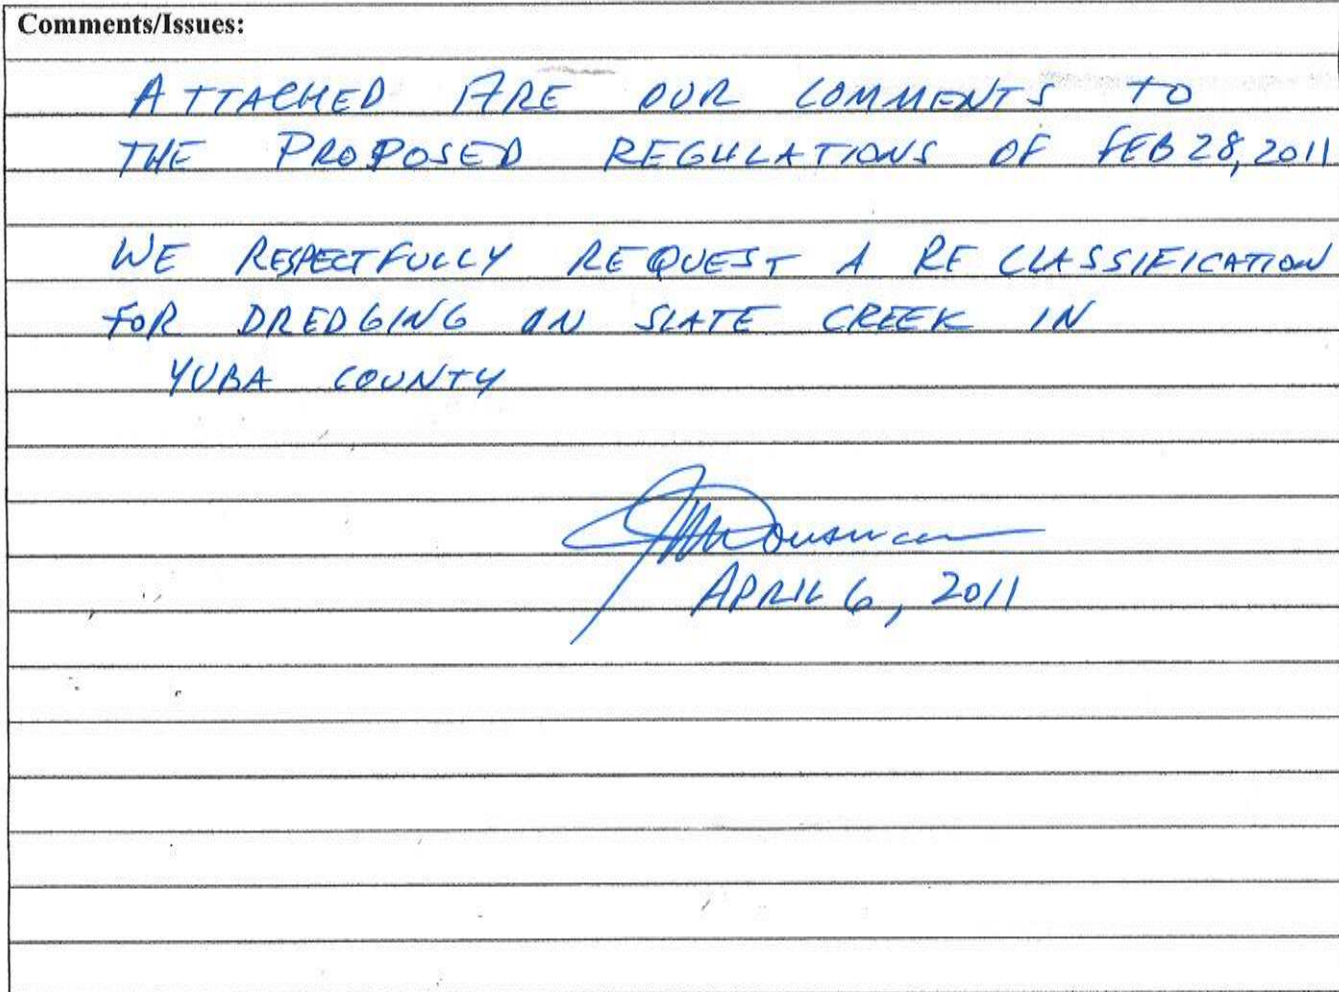 Comments/Issues:
ATTACHED ARE OUR COMMENTS TO
THE PROPOSED REGULATIONS OF FEB 28, 2011
WE RESPECTFULLY REQUEST A RE CLASSIFICATION
FOR DREDGING ON SLATE CREEK IN
YUBA COUNTY
APRIL 6, 2011